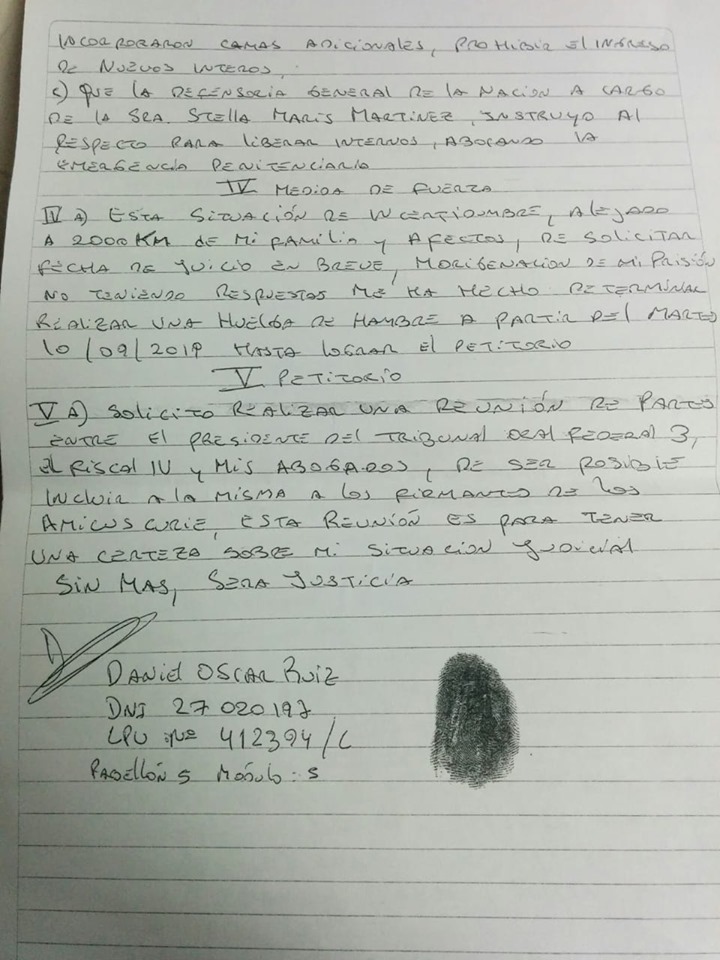 INCORPORARON CAMAS ADICIONALES, PROHIBIR El INGRESO
DE NUEVOS INTEROS,
C) QUE LA DEFENSORIA GENERAL DE LA NACION A CARGO
DE LA SRA. STELLA MARIS MARTINEZ, INSTRUYO Al
RESPECTO PARA LIBERAR INTERNOS, ABOCANDO LA
EMERGENCIA PENITENCIARIO
IV MEDIDA DE FUERZA
IV A) ESTA SITUACIÓN DE INCERTIDUMBRE, ALEJADO
A 2000 KM de Mi FAMILIA y AFECTOS, DE SOLICITAR
FECHA DE JUICIO EN BREVE, MORIGENACION DE Mi PRISIÓN
NO TENIENDO RESPUESTAS ME HA HECHO DETERMINAR
REALIZAR UNA HUELGA DE HAMBRE A PARTIR DEL MARTES
10/09/2019 HASTA LOGRAR EL PETITORIO
V PETITORIO
V A) SOLICITO REALIZAR UNA REUNIÓN DE PARTES
ENTRE El PRESIDENTE DEL TRIBUNAL ORAL FEDERAL 3,
EL FISCAL IV y Mis ABOGADOS, DE SER POSIBLE
INCLUIR A LA MISMA A LOS FIRMANTES DE LOS
AMICUS CURIE, ESTA REUNIÓN ES PARA TENER
UNA CERTEZA SOBRE Mi SITUACION JUDICIAL
SIN MAS, SERA JUSTICIA
DANiel OSCAR RUIZ
DNI 27 020 197
LPU Nº 412394/C
PABELLÓN 5 MÓDULO: 5